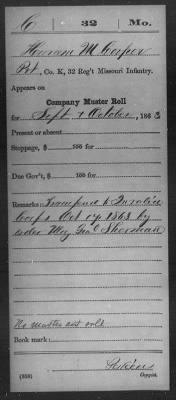 C | 32 | Mo.
Hiram M. Cooper
Pvt, Co. K, 32 Reg't Missouri Infantry.
Appears on
Company Muster Roll
for Sept & October, 1863
Present or absent
Stoppage, $ 100 for
Due Gov't, $ 100 for
Remarks: Transferred to Invalid
Corps Oct 17 1863 by
order Maj Genl Sherman
No muster out roll
Book mark:
(858) Copyist.